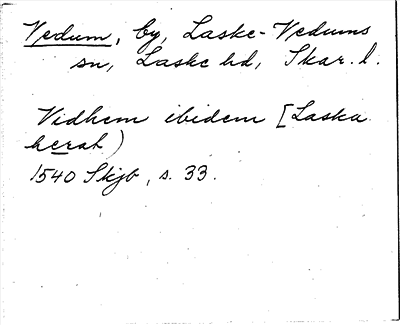 Vedum, by, Laske-Vedums
sn, Laske hd, Skar. l.
Vidhem ibidem [Laska
herah)
1540 Skjb, s. 33.